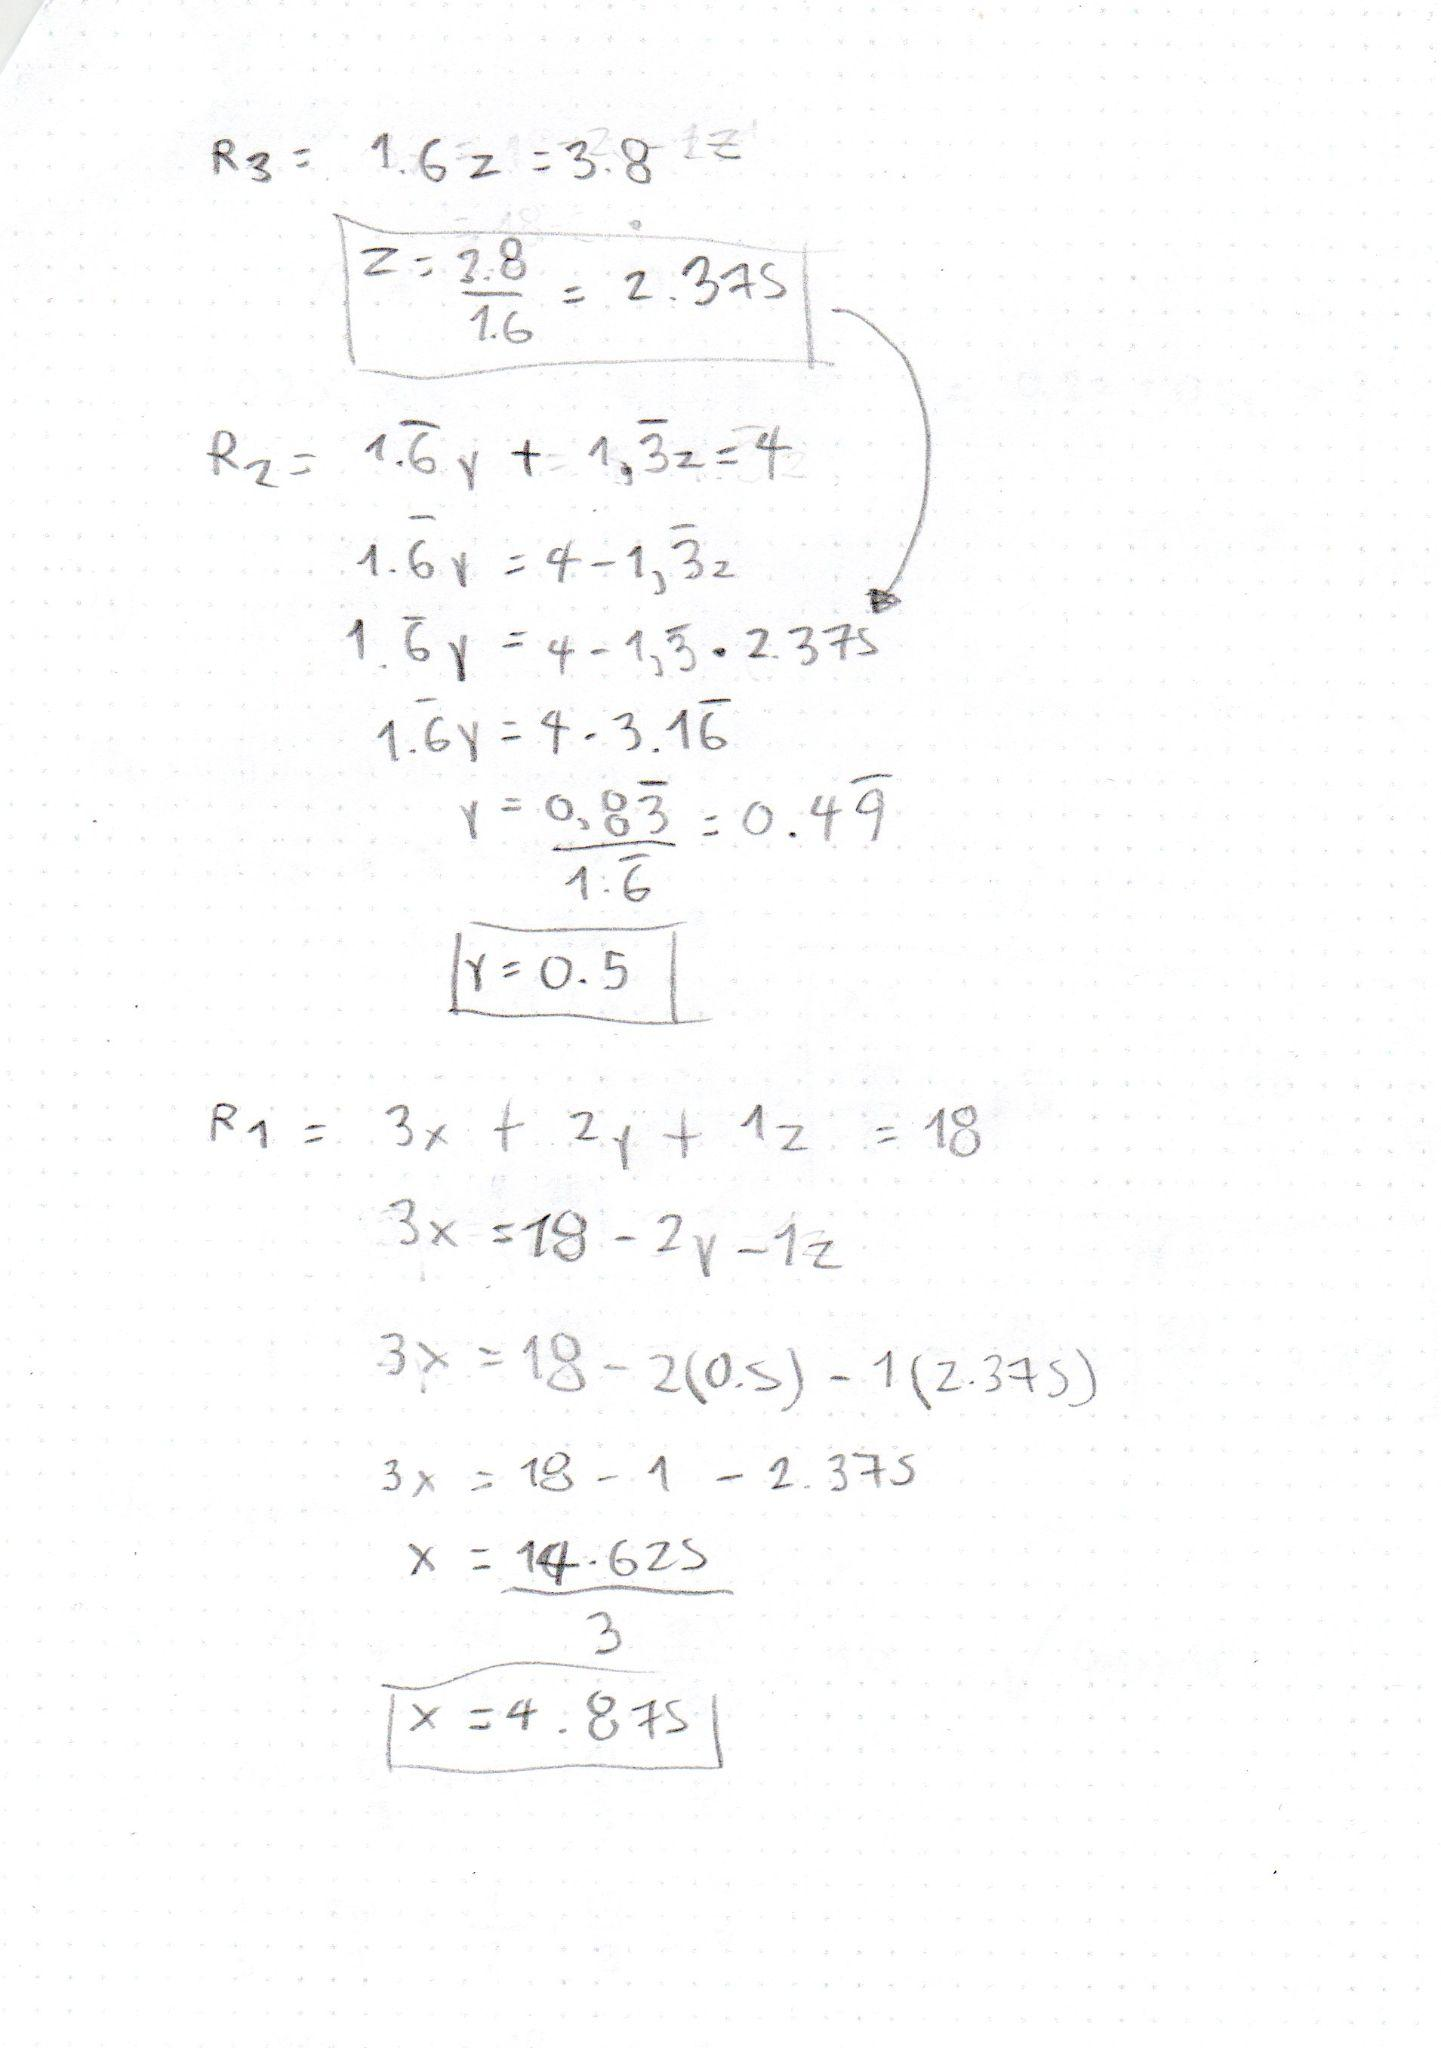 R3 = 1.6z = 3.8
z = 3.8/1.6 = 2.375
R2 = 1.6̅y + 1,3̅z = 4
1.6̅y = 4 - 1,3̅z
1.6̅y = 4 - 1,3̅ · 2.375
1.6̅y = 4 - 3.16̅
y = 0,83̅/1.6̅ = 0.49̅
y = 0.5
R1 = 3x + 2y + 1z = 18
3x = 18 - 2y - 1z
3x = 18 - 2(0.5) - 1(2.375)
3x = 18 - 1 - 2.375
x = 14.625/3
x = 4.875